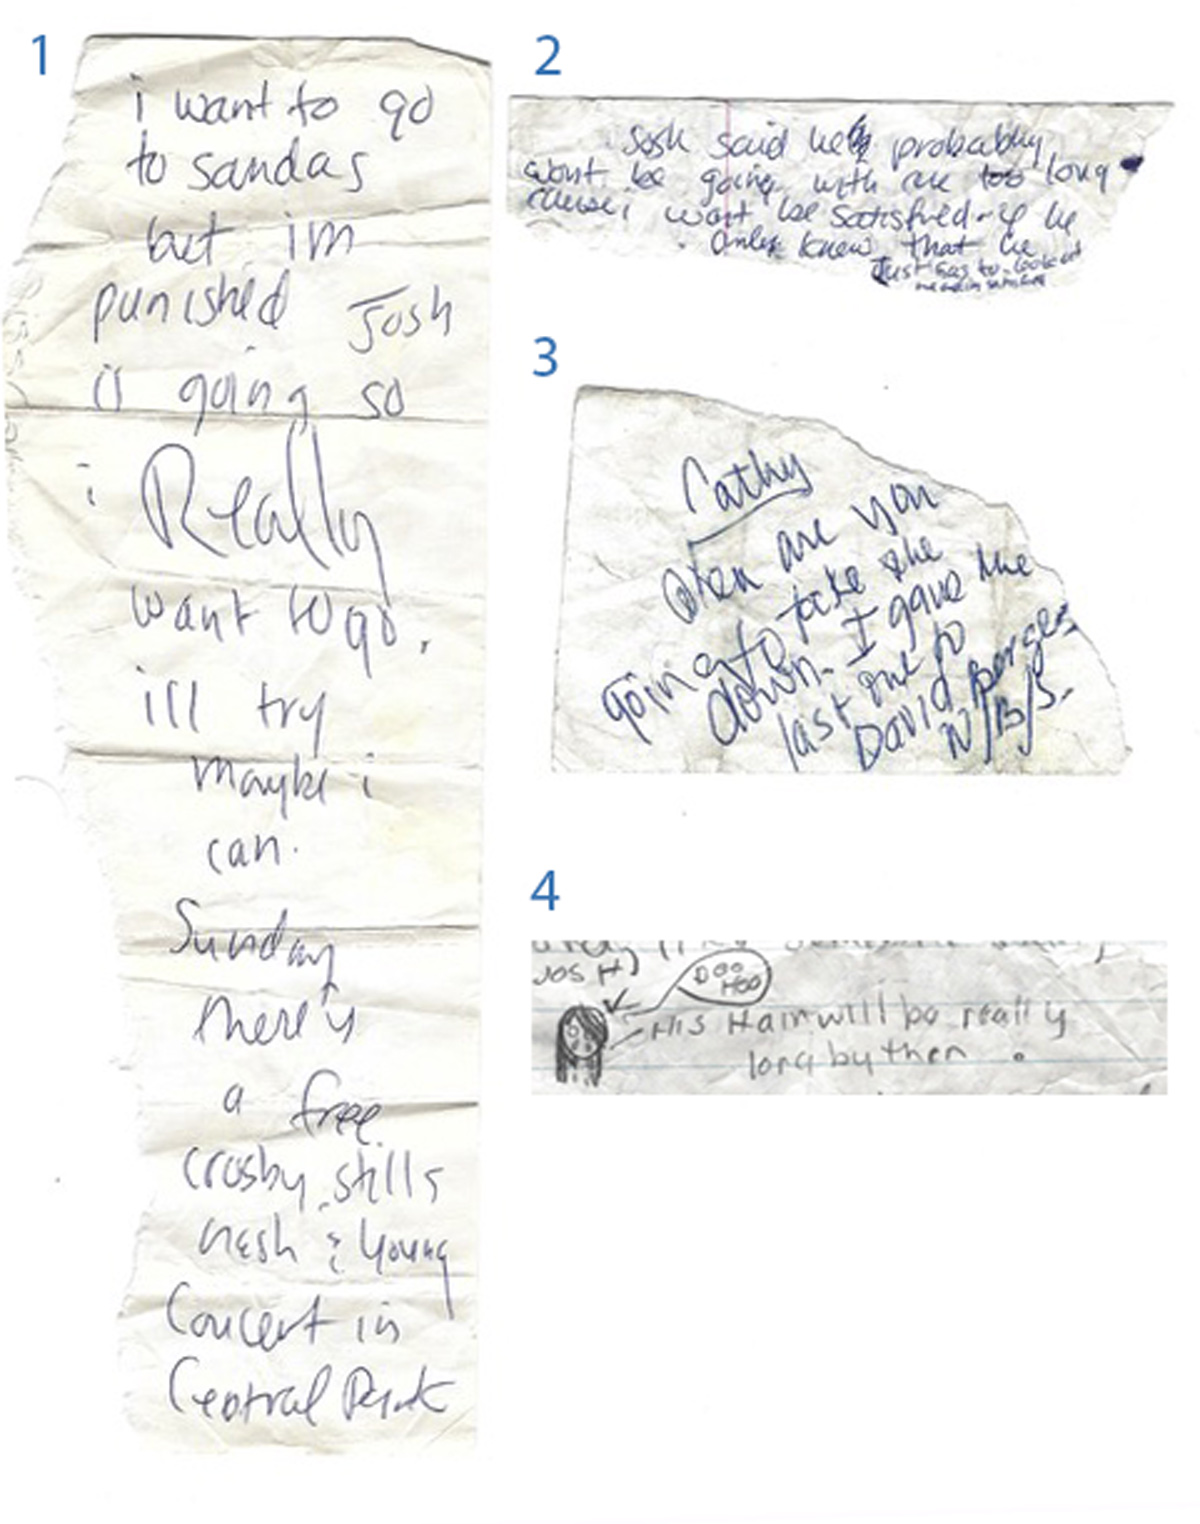 1
i want to go
to sandas
but im
punished Josh
is going so
i Really
want to go.
ill try
maybe i
can.
Sunday
there's
a free
crosby, stills
nash & Young
Concert in
Central Park
2
Josh said he probably
wont be going with me too long
cause i wont be satisfied - if he
only knew that he
Just has to look at
3
Cathy
When are you
going to take the
down. I gave the
last one to
David Berges
N/B/S.
4
JOSH)
DOO
HOO
HIS Hair will be really
long by then .